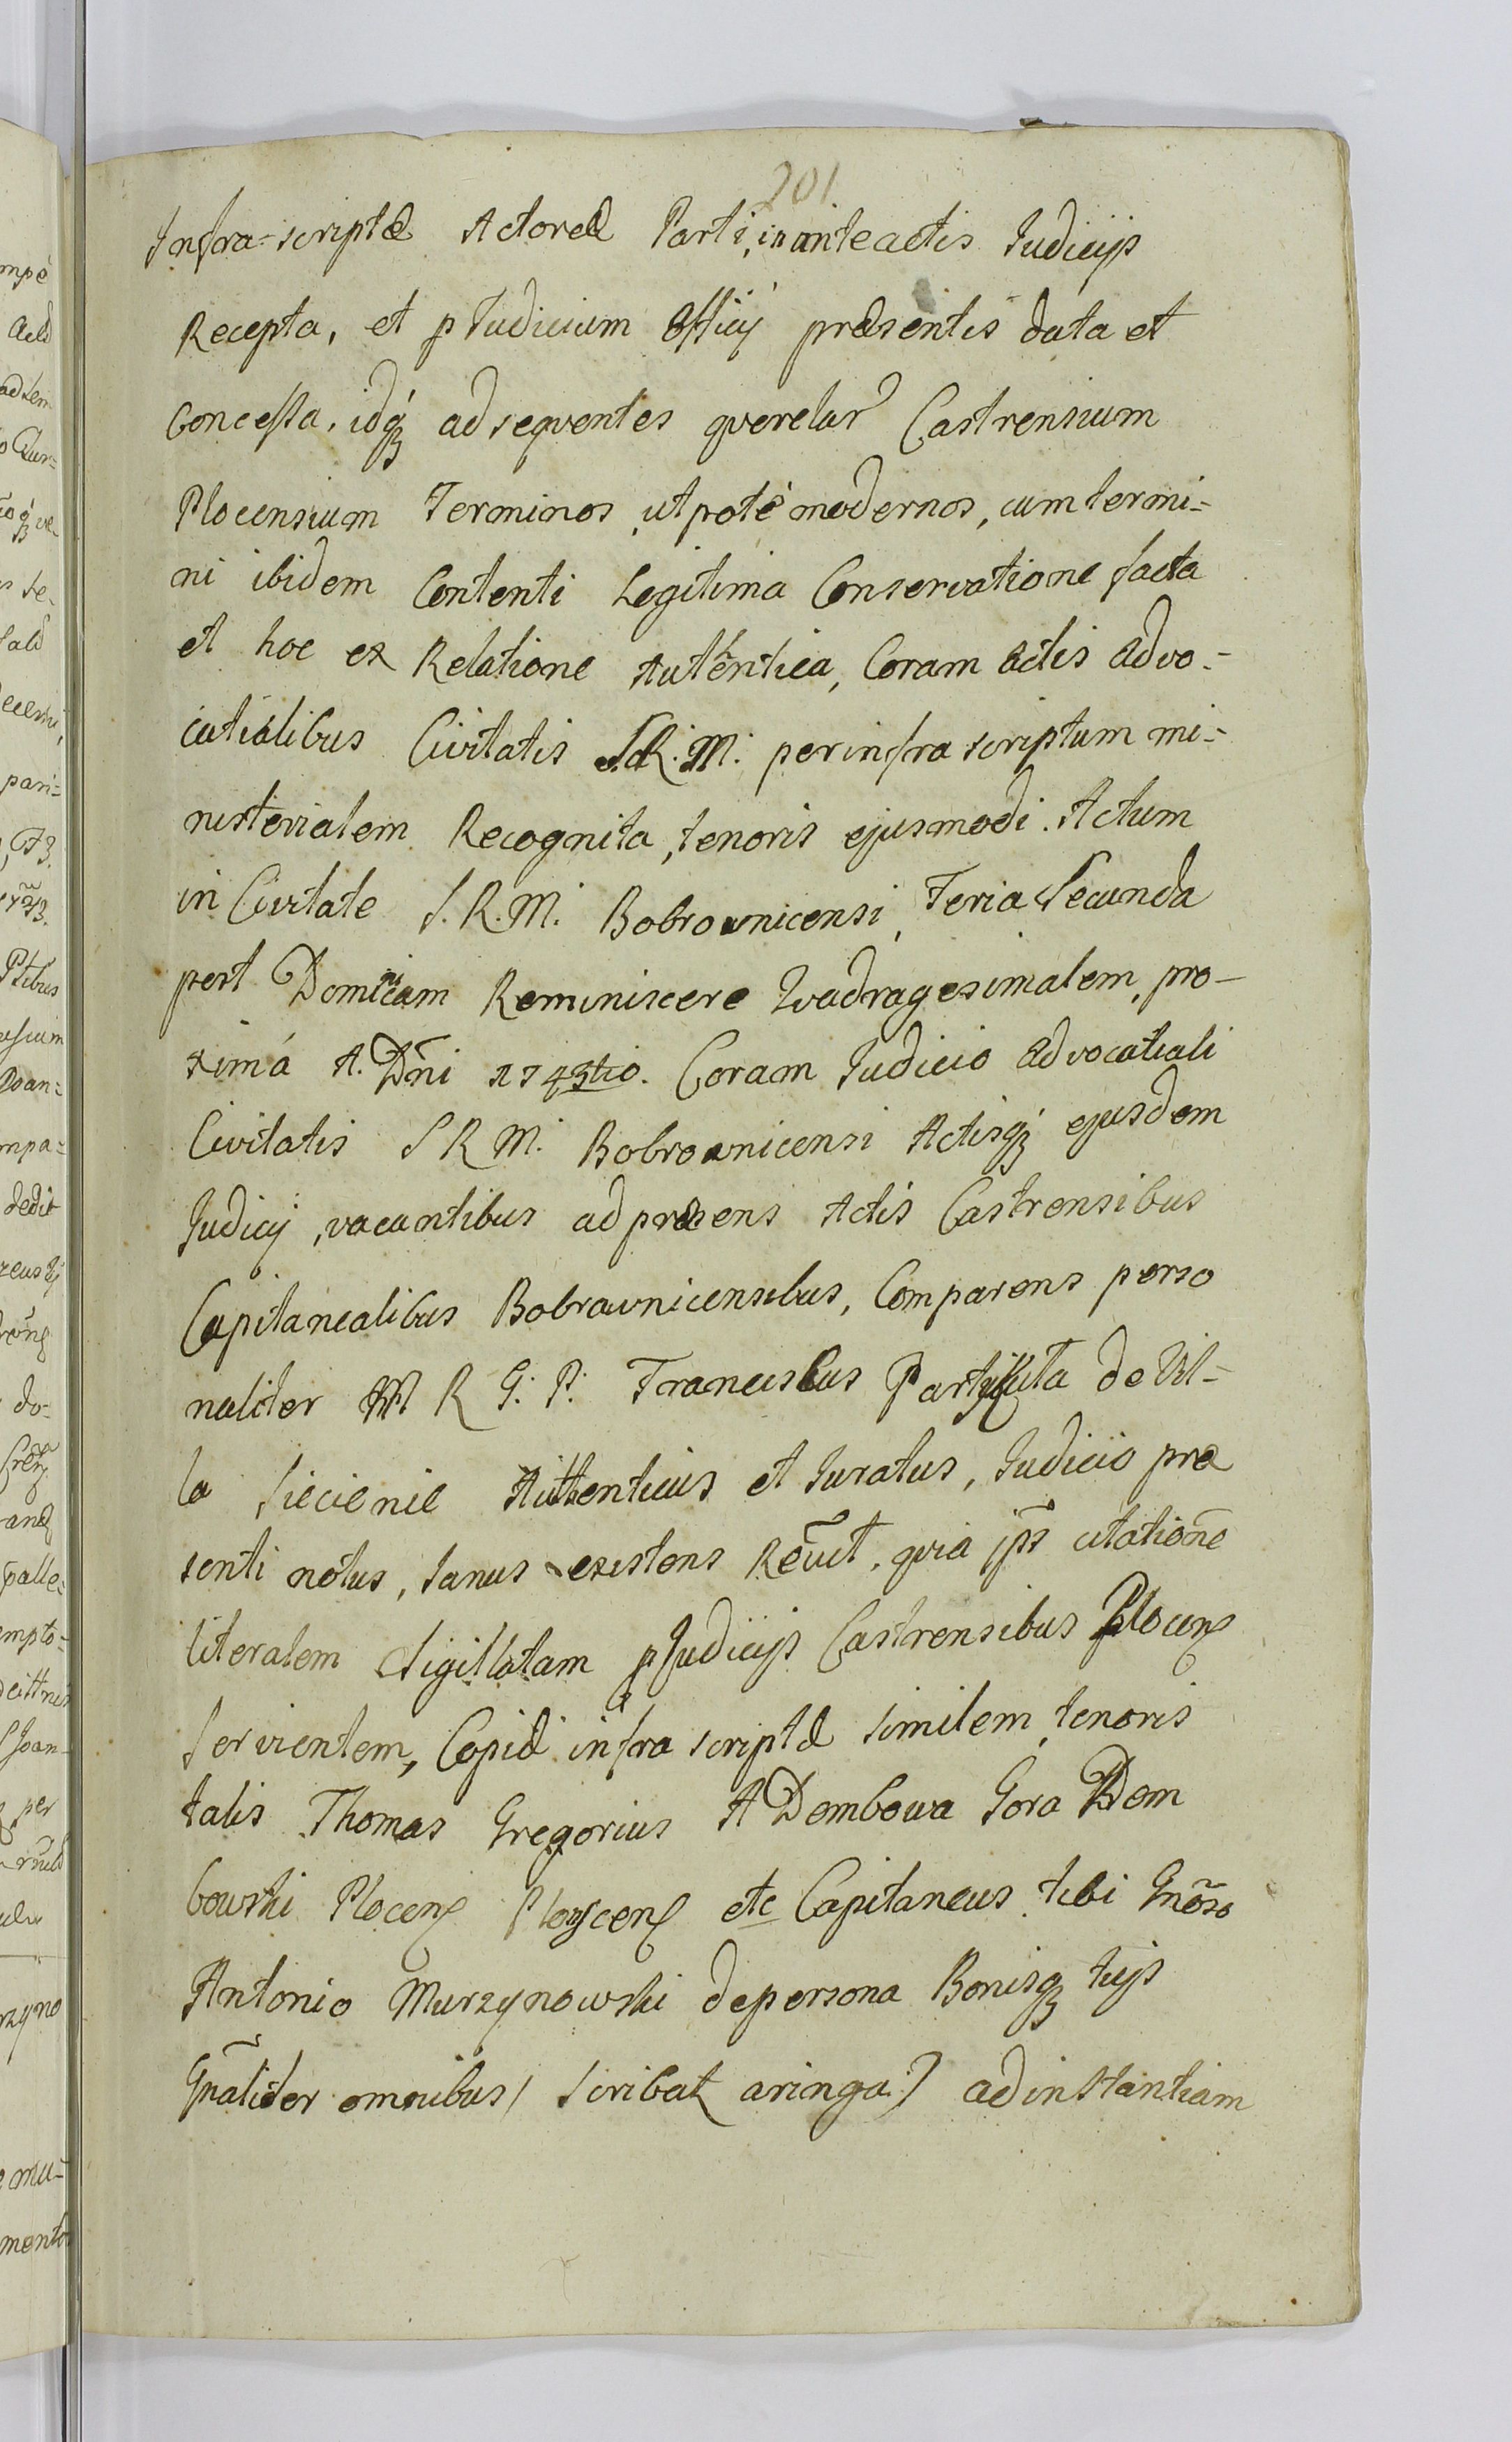 201
Infra-scriptæ Actoreæ Parti, in anteactis Judicijs
Recepta, et p Judicium Officij præsentis data et
Concessa, idq₃ ad sequentes querelar Castrensium
Plocensium Terminos, utpote modernos, cum termi-
ni ibidem Contenti Legitima Conservatione facta
et hoc ex Relatione Autentica, Coram Actis advo-
catialibus Civitatis S.R.M. per infra scriptum mi-
nisterialem Recognita, tenoris ejusmodi. Actum
in Civitate S.R.M. Bobrownicensi, Feria Secunda
post Dominicam Reminiscere Quadragesimalem, pro-
xima A. Dñi 1743tio. Coram Judicio advocatiali
Civitatis S R M. Bobrownicensi Actisq₃ ejusdem
Judicij, vacantibus ad præsens Actis Castrensibus
Capitanealibus Bobrownicensibus, Comparens perso
naliter M R G: P: Franciscus de Vil-
la Siecienie Authenticus et Juratus, Judicio præ
senti notus, sanus existens Reçuit, quia ips citatione
literalem Sigillatam p Judicijs Castrensibus Plocens
Servientem, Copiæ infra scriptæ similem, tenoris
talis Thomas Gregorius A Dembowa Gora Dem
bowski Plocens Ploscens etc Capitaneus tibi Gñoso
Antonio Murzynowski de persona Bonisq₃ tuis
Gñaliter omnibus / scribat aringa:) ad instantiam
mpe
adtem
pari-
Ptibus
Doan-
mpa-
dedit
do-
palle-
empto-
per
rzyno
mento